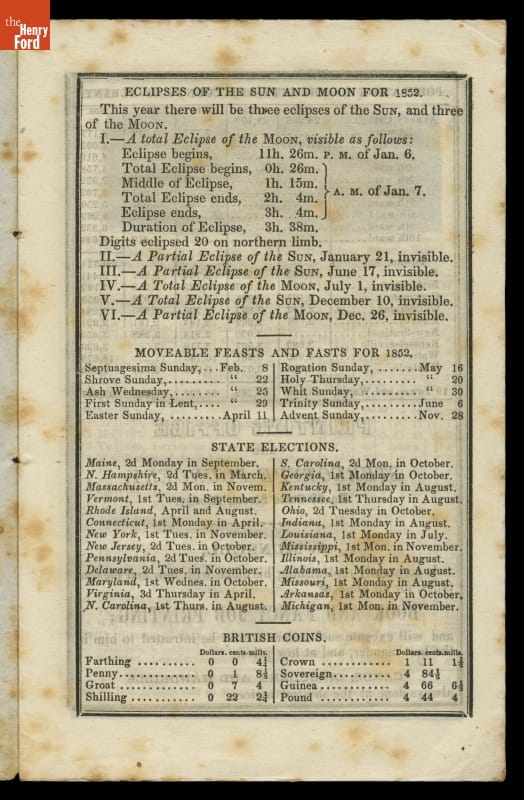 the
Henry
Ford
ECLIPSES OF THE SUN AND MOON FOR 1852.
This year there will be three eclipses of the SUN, and three
of the MOON.
I.—A total Eclipse of the MOON, visible as follows:
Eclipse begins, 11h. 26m. P. M. of Jan. 6.
Total Eclipse begins, 0h. 26m.
Middle of Eclipse, 1h. 15m.
Total Eclipse ends, 2h. 4m.
A. M. of Jan. 7.
Eclipse ends, 3h. 4m.
Duration of Eclipse, 3h. 38m.
Digits eclipsed 20 on northern limb.
II.—A Partial Eclipse of the SUN, January 21, invisible.
III.—A Partial Eclipse of the SUN, June 17, invisible.
IV.—A Total Eclipse of the MOON, July 1, invisible.
V.—A Total Eclipse of the SUN, December 10, invisible.
VI.—A Partial Eclipse of the MOON, Dec. 26, invisible.
MOVEABLE FEASTS AND FASTS FOR 1852.
Septuagesima Sunday,...Feb. 8
Shrove Sunday,......... " 22
Ash Wednesday,......... " 25
First Sunday in Lent,.... " 29
Easter Sunday, ........April 11
Rogation Sunday, .......May 16
Holy Thursday,......... " 20
Whit Sunday, .......... " 30
Trinity Sunday,........June 6
Advent Sunday,........Nov. 28
STATE ELECTIONS.
Maine, 2d Monday in September.
N. Hampshire, 2d Tues. in March.
Massachusetts, 2d Mon. in Novem.
Vermont, 1st Tues. in September.
Rhode Island, April and August.
Connecticut, 1st Monday in April.
New York, 1st Tues. in November.
New Jersey, 2d Tues. in October.
Pennsylvania, 2d Tues. in October.
Delaware, 2d Tues. in November.
Maryland, 1st Wednes. in October.
Virginia, 3d Thursday in April.
N. Carolina, 1st Thurs. in August.
S. Carolina, 2d Mon. in October.
Georgia, 1st Monday in October.
Kentucky, 1st Monday in August.
Tennessee, 1st Thursday in August.
Ohio, 2d Tuesday in October.
Indiana, 1st Monday in August.
Louisiana, 1st Monday in July.
Mississippi, 1st Mon. in November.
Illinois, 1st Monday in August.
Alabama, 1st Monday in August.
Missouri, 1st Monday in August.
Arkansas, 1st Monday in October.
Michigan, 1st Mon. in November.
BRITISH COINS.
Dollars. cents. mills.
Farthing .......... 0 0 4¼
Penny............. 0 1 8½
Groat ............. 0 7 4
Shilling ........... 0 22 2¼
Dollars. cents. mills.
Crown ............ 1 11 1½
Sovereign.......... 4 84½
Guinea............ 4 66 6½
Pound ............ 4 44 4